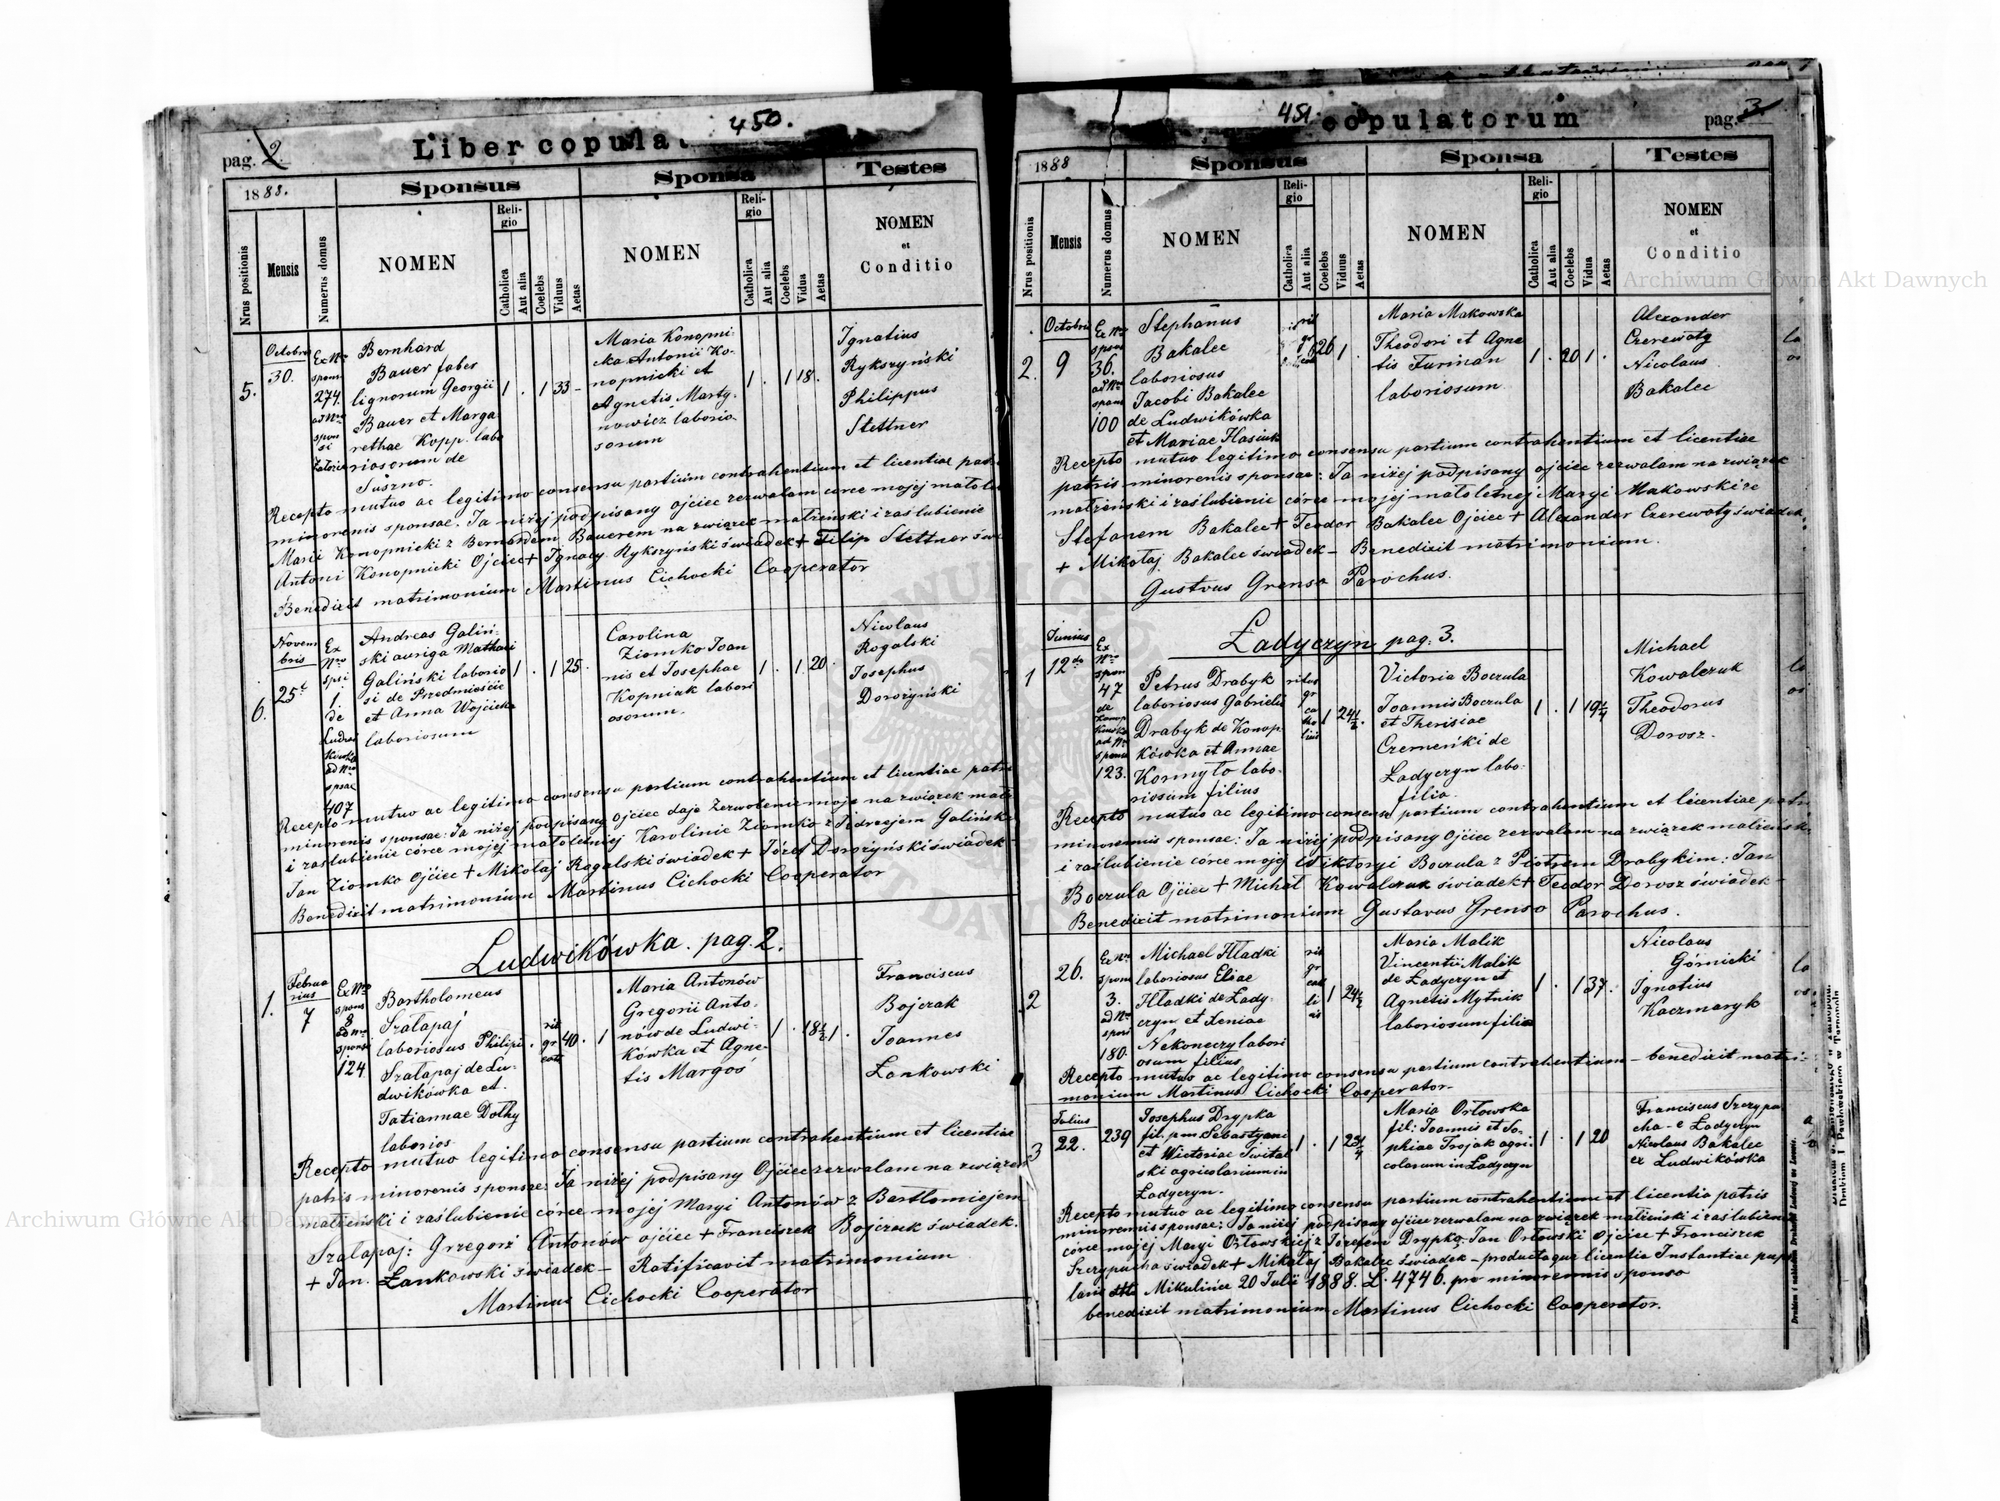 450.
Liber copulat
pag. 2.
1888.
Sponsus
Sponsa
Testes
Nrus positionis
Mensis
Numerus domus
NOMEN
Religio
Catholica
Aut alia
Coelebs
Viduus
Aetas
NOMEN
Religio
Catholica
Aut alia
Coelebs
Vidua
Aetas
NOMEN
et
Conditio
5.
Octobris
30.
Ex Nro
spons
274.
ad Nro
spon
si
Bernhard
Bauer faber
lignorum Georgii
Bauer et Marga
rethae Kopp. labo
riosorum de
Suszno.
1 . 1 33 -
Maria Konopni-
cka Antonii Ko-
nopnicki et
Agnetis Marty-
nowicz laborio-
sorum
1 . 1 18.
Ignatius
Rykszyński
Philippus
Stettner
Recepto mutuo ac legitimo consensu partium contrahentium et licentiae patr
minorenis sponsae. Ja niżej podpisany ojciec zezwalam córce mojej małole
Marii Konopnicki z Bernardem Bauerem na związek małżeński i zaślubienie
Antoni Konopnicki Ojciec + Ignacy Rykszyński świadek + Filip Stettner świ
Benedixit matrimonium Martinus Cichocki Cooperator
6.
Novem
bris
25.
Ex
Nro
spsi
1.
de
Ludwi
kówka
ad Nro
spsae
407
Andreas Galiń-
ski auriga Mathaei
Galiński laborio
si de Przedmieście
et Anna Wojcicka
laboriosum
1 . 1 25.
Carolina
Ziomko Joan
nis et Josephae
Kopniak labori
osorum.
1 . 1 20.
Nicolaus
Rogalski
Josephus
Dorożyński
Recepto mutuo ac legitimo consensu partium contrahentium et licentiae patri
minorenis sponsae: Ja niżej podpisany ojciec daje zezwolenie moje na związek małż
i zaślubienie córce mojej małoletniej Karolinie Ziomko z Jędrzejem Galińskim
Jan Ziomko Ojciec + Mikołaj Rogalski świadek + Józef Dorożyński świadek
Benedixit matrimonium Martinus Cichocki Cooperator
Ludwikówka. pag. 2.
1.
Februa
rius
7
Ex Nro
spons
8
ad Nro
sponsi
124
Bartholomeus
Szałapaj
laboriosus Philipi
Szałapaj de Lu-
dwikówka et
Tatiannae Dołhy
laborios.
rit
gr
cath
40. 1
Maria Antonów
Gregorii Anto-
nów de Ludwi-
kówka et Agne-
tis Margoś
1 . 18 1/2 1.
Franciscus
Bojczak
Joannes
Łankowski
Recepto mutuo legitimo consensu partium contrahentium et licentiae
patris minorenis sponsae: Ja niżej podpisany Ojciec zezwalam na związek
małżeński i zaślubienie córce mojej Maryi Antonów z Bartłomiejem
Szałapaj: Grzegorz Antonów ojciec + Franciszek Bojczuk świadek.
+ Jan. Łankowski świadek - Ratificavit matrimonium
Martinus Cichocki Cooperator
451.
copulatorum
pag. 3
1888
Sponsus
Sponsa
Testes
Nrus positionis
Mensis
Numerus domus
NOMEN
Religio
Catholica
Aut alia
Coelebs
Viduus
Aetas
NOMEN
Religio
Catholica
Aut alia
Coelebs
Vidua
Aetas
NOMEN
et
Conditio
2.
Octobris
9
Ex Nro
spons
36.
ad Nro
spons
100
Stephanus
Bakalec
laboriosus
Jacobi Bakalec
de Ludwikówka
et Mariae Hasiuk
26 1.
Maria Makowska
Theodori et Agne
tis Furman
laboriosum.
1 . 20 1.
Alexander
Czerewaty
Nicolaus
Bakalec
Recepto mutuo legitimo consensu partium contrahentium et licentiae
patris minorenis sponsae: Ja niżej podpisany ojciec zezwalam na związek
małżeński i zaślubienie córce mojej małoletniej Maryi Makowskie
Stefanem Bakalec + Teodor Bakalec Ojciec + Alexander Czerewaty świadek
+ Mikołaj Bakalec świadek - Benedixit matrimonium.
Gustvus Grenso Parochus.
Ładyczyn pag. 3.
1
Junius
12
Ex
Nro
spon
47
de
Konop
kówka
ad Nro
spons
123.
Petrus Drabyk
laboriosus Gabrielis
Drabyk de Konop
kówka et Annae
Kormyło labo-
riosum filius
ritus
gr
ca
tho
licus
1 24 1/2.
Victoria Boczula
Joannis Boczula
et Theresiae
Czemeński de
Ładyczyn labo-
filia.
1 . 1 19 1/4
Michael
Kowalczuk
Theodorus
Dorosz.
Recepto mutuo legitimo consensu partium contrahentium et licentiae patri
minorenis sponsae: Ja niżej podpisany Ojciec zezwalam na związek małżeński
i zaślubienie córce mojej Wiktoryi Boczula z Piotrem Drabykim: Jan
Boczula Ojciec + Michał Kowalczuk świadek + Teodor Dorosz świadek -
Benedixit matrimonium Gustavus Grenso Parochus.
2
26.
Ex Nro
spons
3.
ad Nro
sponsi
180.
Michael Hladki
laboriosus Eliae
Hladki de Łady-
czyn et Xeniae
Nekoneczy labori
osum filius
rit
gr
cat
1 24 1/2
Maria Malik
Vincentii Malik
de Ładyczyn et
Agnetis Mytnik
laboriosum filia
1 . 1 37.
Nicolaus
Górnicki
Ignatius
Kaczmaryk
Recepto mutuo ac legitimo consensu partium contrahentium - benedixit matri-
monium Martinus Cichocki Cooperator-
3
Julius
22.
239
Josephus Drypka
fil. pm. Sebastyani
et Victoriae Switał
ski agricolarum in
Ładyczyn.
1 . 1 23 1/4
Maria Orłowska
fil: Joannis et So-
phiae Trojak agri-
colarum in Ładyczyn
1 . 1 20
Franciscus Szczypu
cha - e Ładyczyn
Nicolaus Bakalec
ex Ludwikówka
Recepto mutuo ac legitimo consensu partium contrahentium et licentia patris
minorenis sponsae: Ja niżej podpisany ojciec zezwalam na związek małżeński i zaślubienie
córce mojej Maryi Orłowskiej z Józefem Drypką. Jan Orłowski Ojciec + Franciszek
Szczypucha świadek + Mikołaj Bakalec świadek - productaque licentia Instantiae pupil
lari Mikulińce 20 Julii 1888. L. 4746. pro minorenni sponso
benedixit matrimonium Martinus Cichocki Cooperator.
Drukiem J. Pawłowskiego w Tarnopolu
Archiwum Główne Akt Dawnych
Archiwum Główne Akt Dawnych